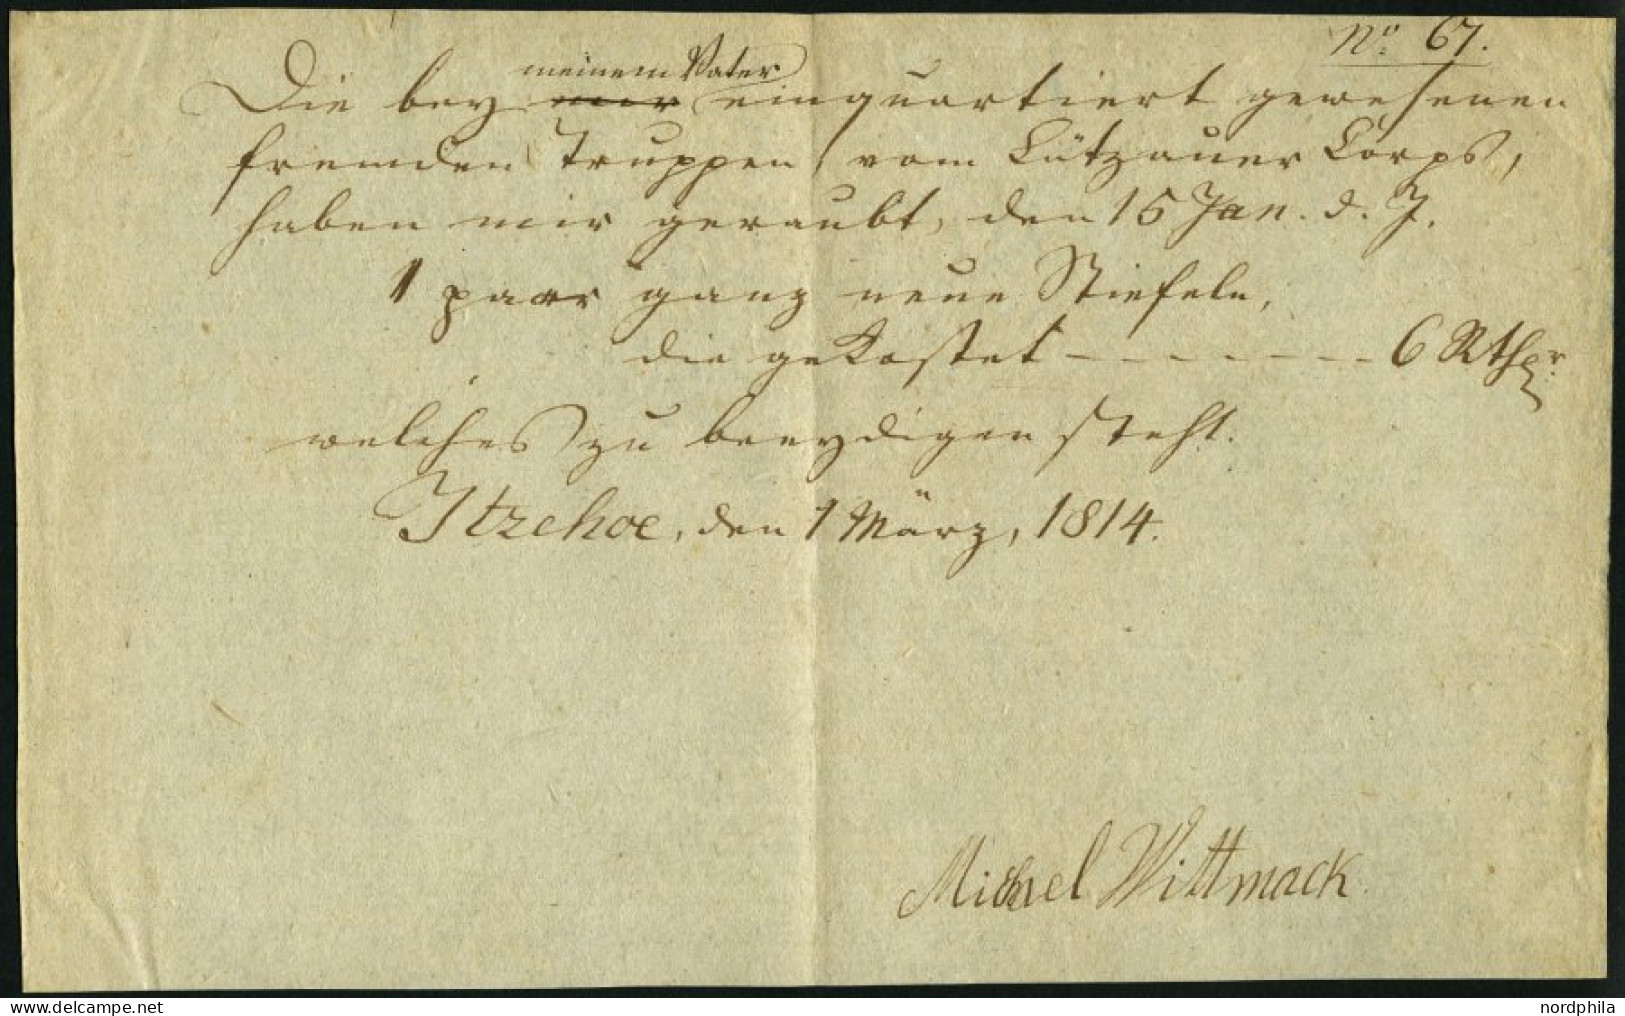 No. 67.
meinem Vater
Die bey mir einquartiert gewesenen
fremden Truppen vom Lützauer Corps,
haben mir geraubt, den 15 Jan. d. J.
1 paar ganz neue Stiefeln,
die gekostet - - - - - - - 6 Rthlr.
welches zu beeydigen steht.
Itzehoe, den 1 März, 1814.
Michael Wittmack
www.delcampe.net
nordphila